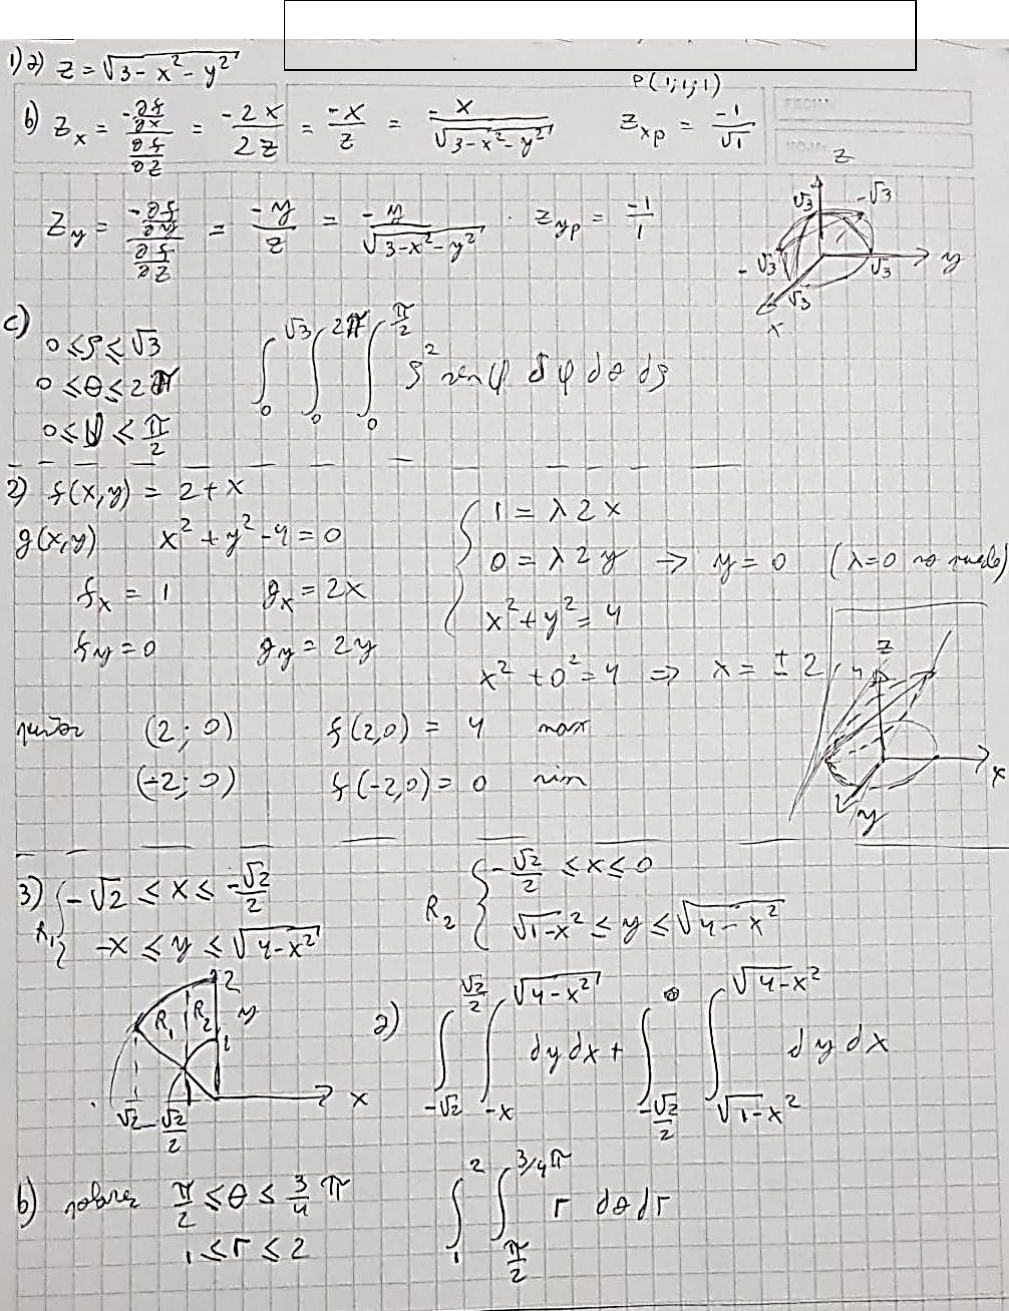 1) a) z = √(3 - x² - y²)
P(1;1;1)
b) z_x = (-∂f/∂x)/(∂f/∂z) = -2x/2z = -x/z = -x/√(3-x²-y²)   z_xp = -1/√1
z_y = (-∂f/∂y)/(∂f/∂z) = -y/z = -y/√(3-x²-y²) . z_yp = -1/1
z
√3 -√3
-√3 √3 y
√3
x
c) 0 ≤ ρ ≤ √3
0 ≤ θ ≤ 2π
0 ≤ φ ≤ π/2
∫₀^√3 ∫₀^2π ∫₀^π/2 ρ² sen φ dφ dθ dρ
2) f(x,y) = 2+x
g(x,y) x² + y² - 4 = 0
f_x = 1   g_x = 2x
f_y = 0   g_y = 2y
{ 1 = λ 2x
0 = λ 2y → y = 0 (λ=0 no puede)
x² + y² = 4
x² + 0² = 4 ⇒ x = ± 2
puntos (2; 0)   f(2,0) = 4   max
(-2; 0)   f(-2,0) = 0   min
z
4
x
y
3) R₁ { -√2 ≤ x ≤ -√2/2
-x ≤ y ≤ √(4-x²)
R₂ { -√2/2 ≤ x ≤ 0
√(1-x²) ≤ y ≤ √(4-x²)
2
R₁ R₂ y
1
√2 -√2/2 x
a) ∫_-√2^√2/2 ∫_-x^√(4-x²) dy dx + ∫_-√2/2^0 ∫_√(1-x²)^√(4-x²) dy dx
b) polares π/2 ≤ θ ≤ 3/4 π
1 ≤ r ≤ 2
∫₁² ∫_π/2^3/4π r dθ dr